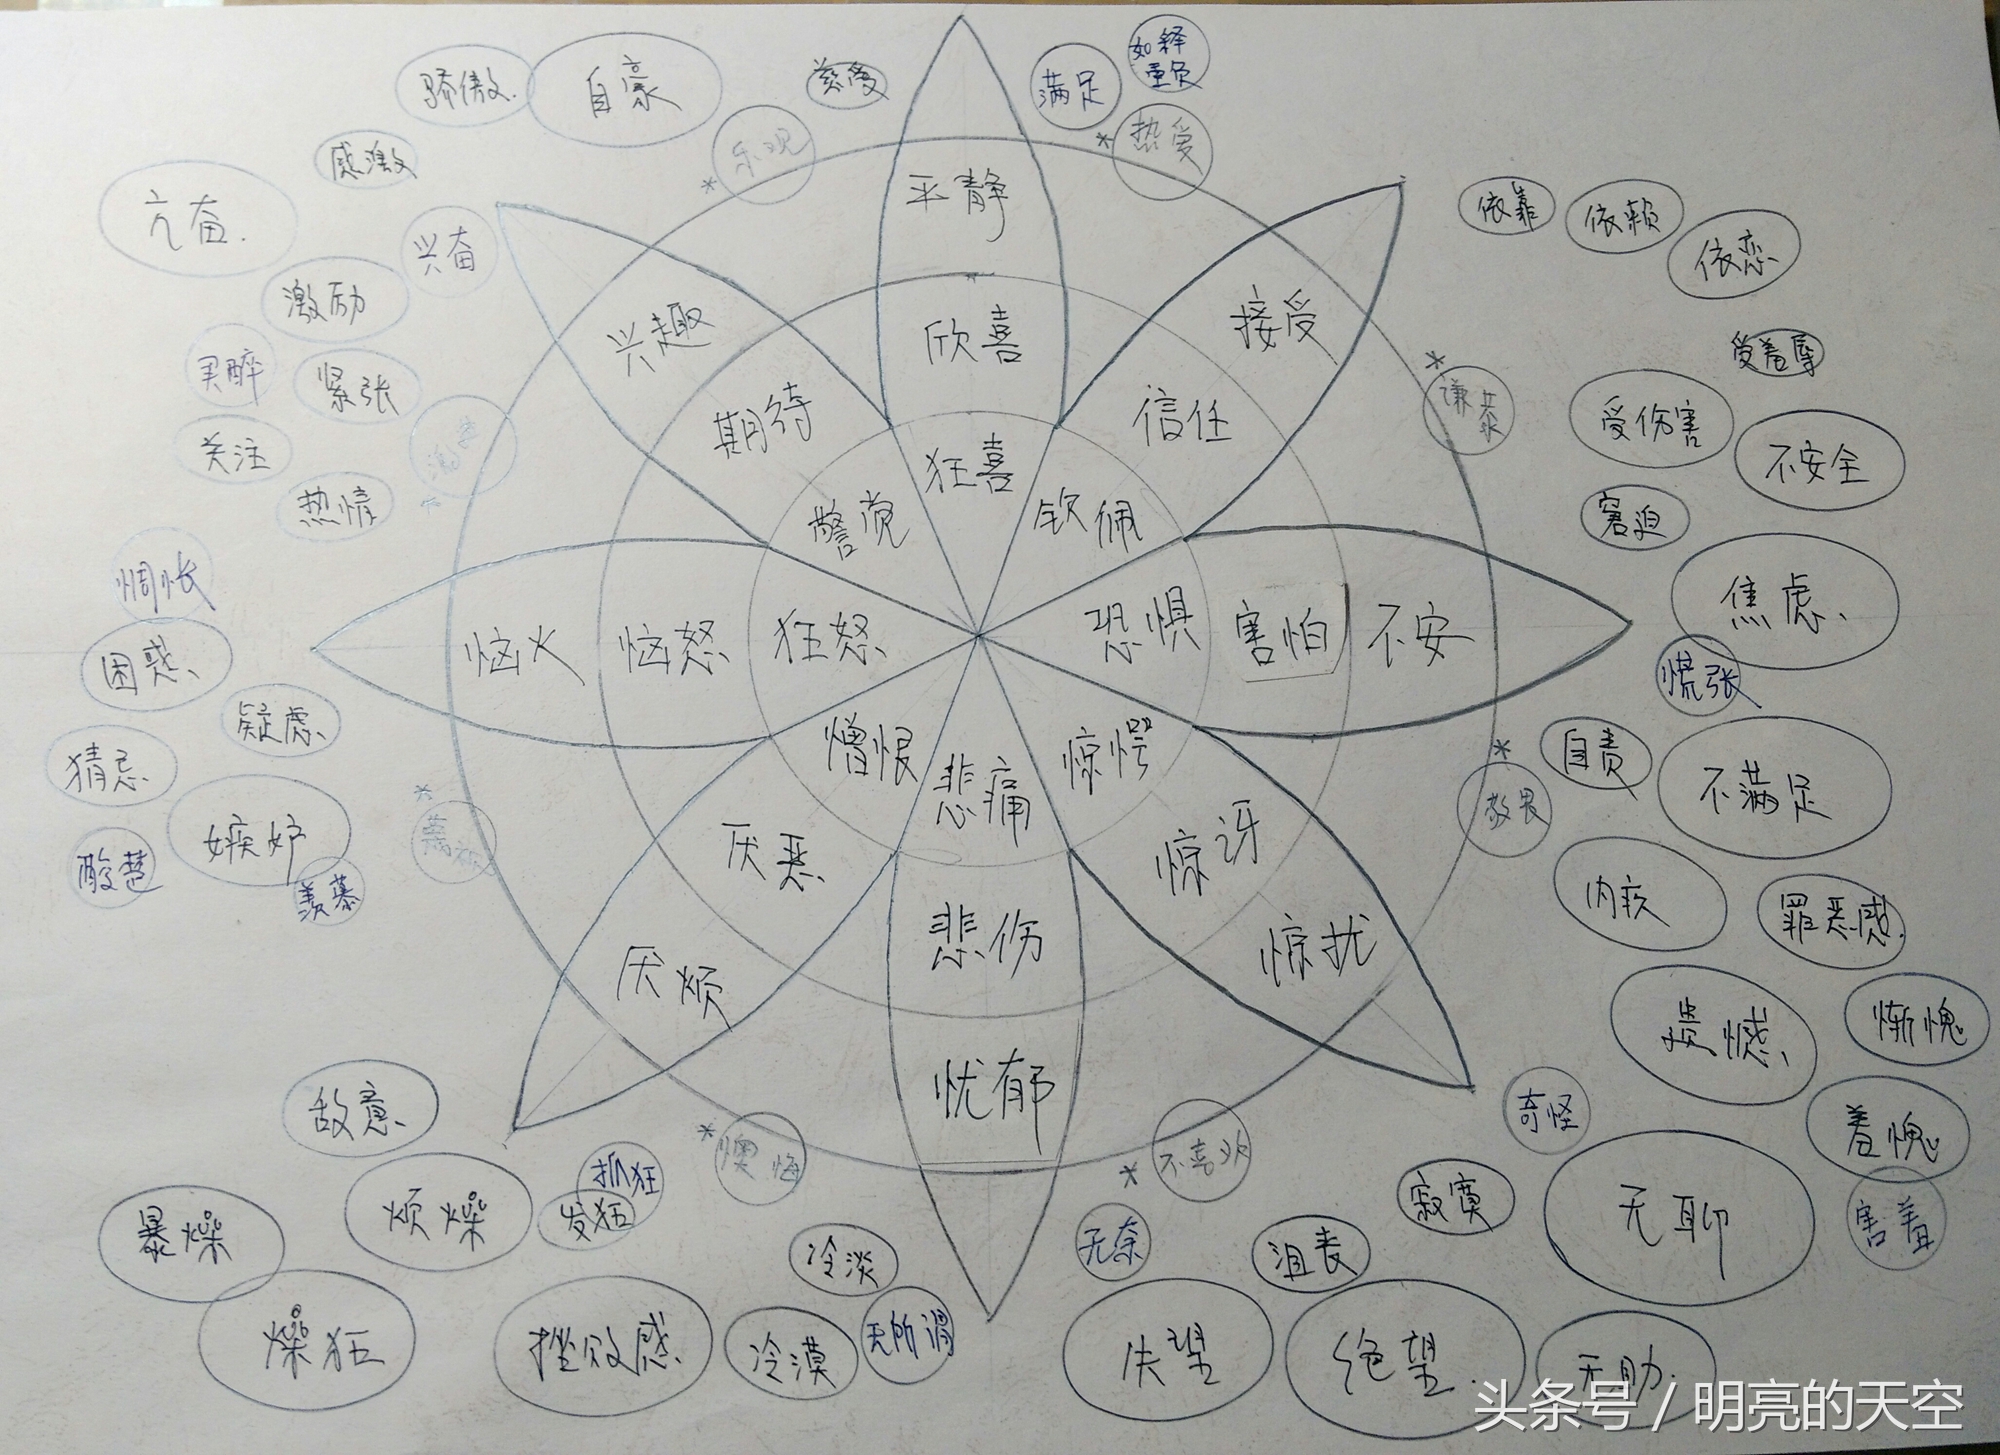 骄傲
自豪
慈爱
满足
如释
重负
乐观
热爱
感激
亢奋
兴奋
激励
紧张
关注
热情
平静
欣喜
狂喜
兴趣
期待
警觉
接受
信任
钦佩
依靠
依赖
依恋
受羞辱
受伤害
不安全
窘迫
焦虑
慌张
惆怅
困惑
疑虑
猜忌
嫉妒
酸楚
羡慕
恼火
恼怒
狂怒
恐惧
害怕
不安
自责
不满足
敬畏
内疚
罪恶感
遗憾
惭愧
羞愧
害羞
憎恨
厌恶
厌烦
悲痛
悲伤
忧郁
惊愕
惊讶
惊扰
奇怪
敌意
抓狂
发狂
烦燥
暴燥
燥狂
懊悔
不喜欢
挫败感
冷淡
冷漠
无所谓
无奈
沮丧
寂寞
无聊
失望
绝望
无助
头条号 / 明亮的天空